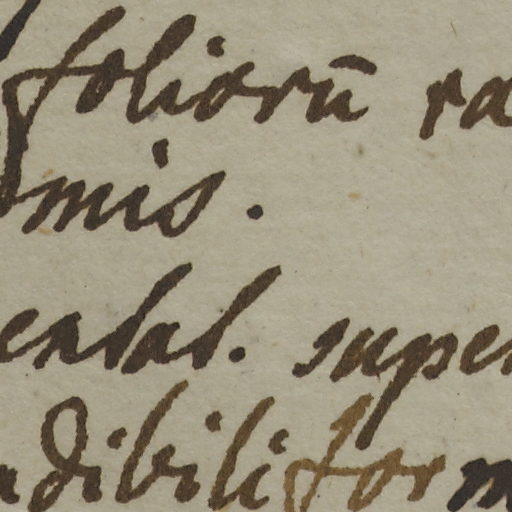 foliorū ra
mis.
calal. super
ndibiliform